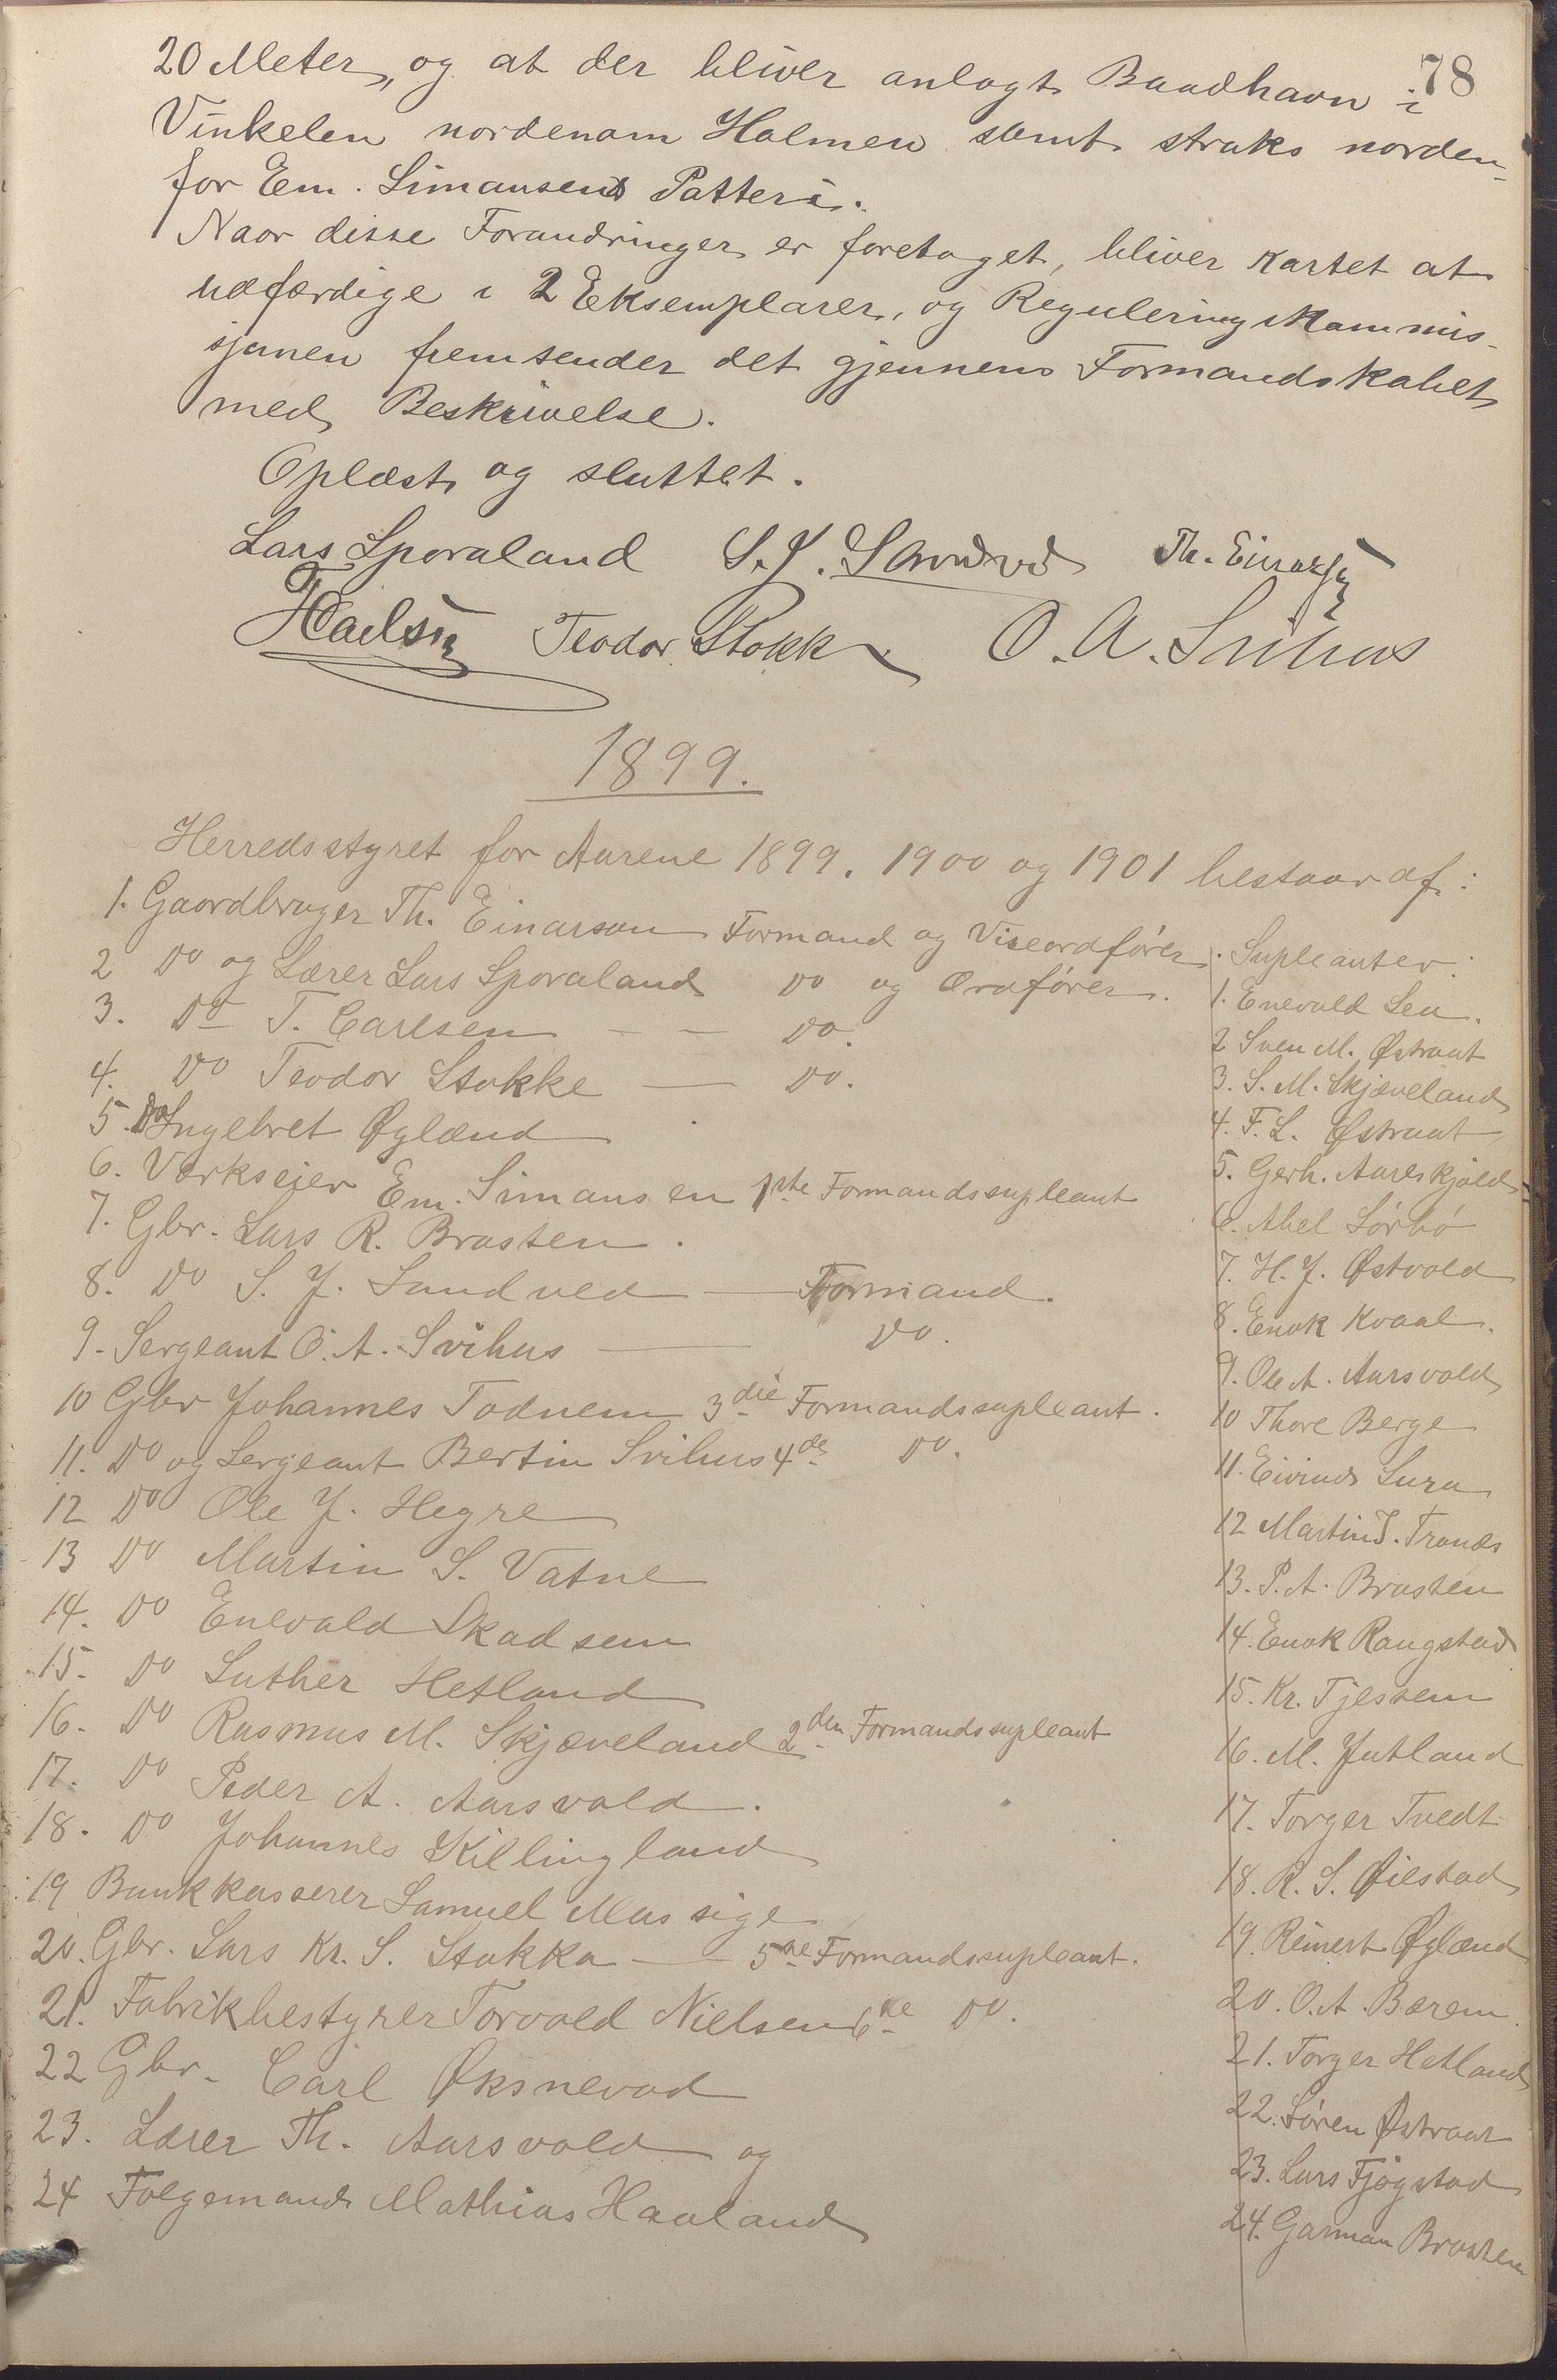 78
20 Meter, og at der bliver anlagt Baadhavn i
Vinkelen nordenom Holmen samt straks norden-
for Em. Simonsens Potteri.
Naar disse Forandringer er foretaget, bliver Kartet at
udfærdige i 2 Eksemplarer, og Reguleringskommis-
sjonen fremsender det gjennem Formandskabet
med Beskrivelse.
Oplæst og sluttet.
Lars Sporaland S. J. Sandved Th. Einarsen
T Carlsen Teodor Stokke O. A. Svihus
1899.
Herredsstyret for Aarene 1899, 1900 og 1901 bestaar af:
1. Gaardbruger Th. Einarson Formand og Viseordfører.
2 Do og Lærer Lars Sporaland Do og Ordfører.
3. Do T. Carlsen — — Do.
4. Do Teodor Stokke — Do.
5. Do Ingebret Øglænd
6. Værkseier Em. Simonsen 1ste Formandssupleant
7. Gbr. Lars R. Brasten.
8. Do S. J. Sandved — Formand.
9. Sergeant O. A. Svihus — Do.
10 Gbr Johannes Todnem 3die Formandssupleant.
11. Do og Sergeant Bertin Svihus 4de Do.
12 Do Ole J. Hegre
13 Do Martin S. Vatne
14. Do Enevald Skadsem
15. Do Luther Hetland
16. Do Rasmus M. Skjæveland 2den Formandssupleant
17. Do Peder A. Aarsvold.
18. Do Johannes Killingland
19 Bankkasserer Samuel Massige
20. Gbr. Lars Kr. S. Stokka — 5te Formandssupleant.
21. Fabrikbestyrer Torvald Nielsen 6te Do.
22 Gbr. Carl Øksnevad
23. Lærer Th. Aarsvold og
24 Folgemand Mathias Haaland
Supleanter:
1. Enevald Lea.
2 Sven M. Østraat
3. S. M. Skjæveland
4. F. L. Østraat
5. Gerh. Aareskjold
6. Abel Sørbø
7. H. J. Østvold
8. Enok Kvaal.
9. Ole A. Aarsvold
10 Thore Berge
11. Eivind Lura
12 Martin T. Tronds
13. P. A. Brasten
14. Enok Rougstad
15. Kr. Tjessem
16. M. Jutland
17. Torger Tvedt
18. R. S. Øilestad
19. Reinert Øglænd
20. O. A. Bærem.
21. Torger Hetland
22. Søren Østraat
23. Lars Fjøgstad
24. Garman Brasten